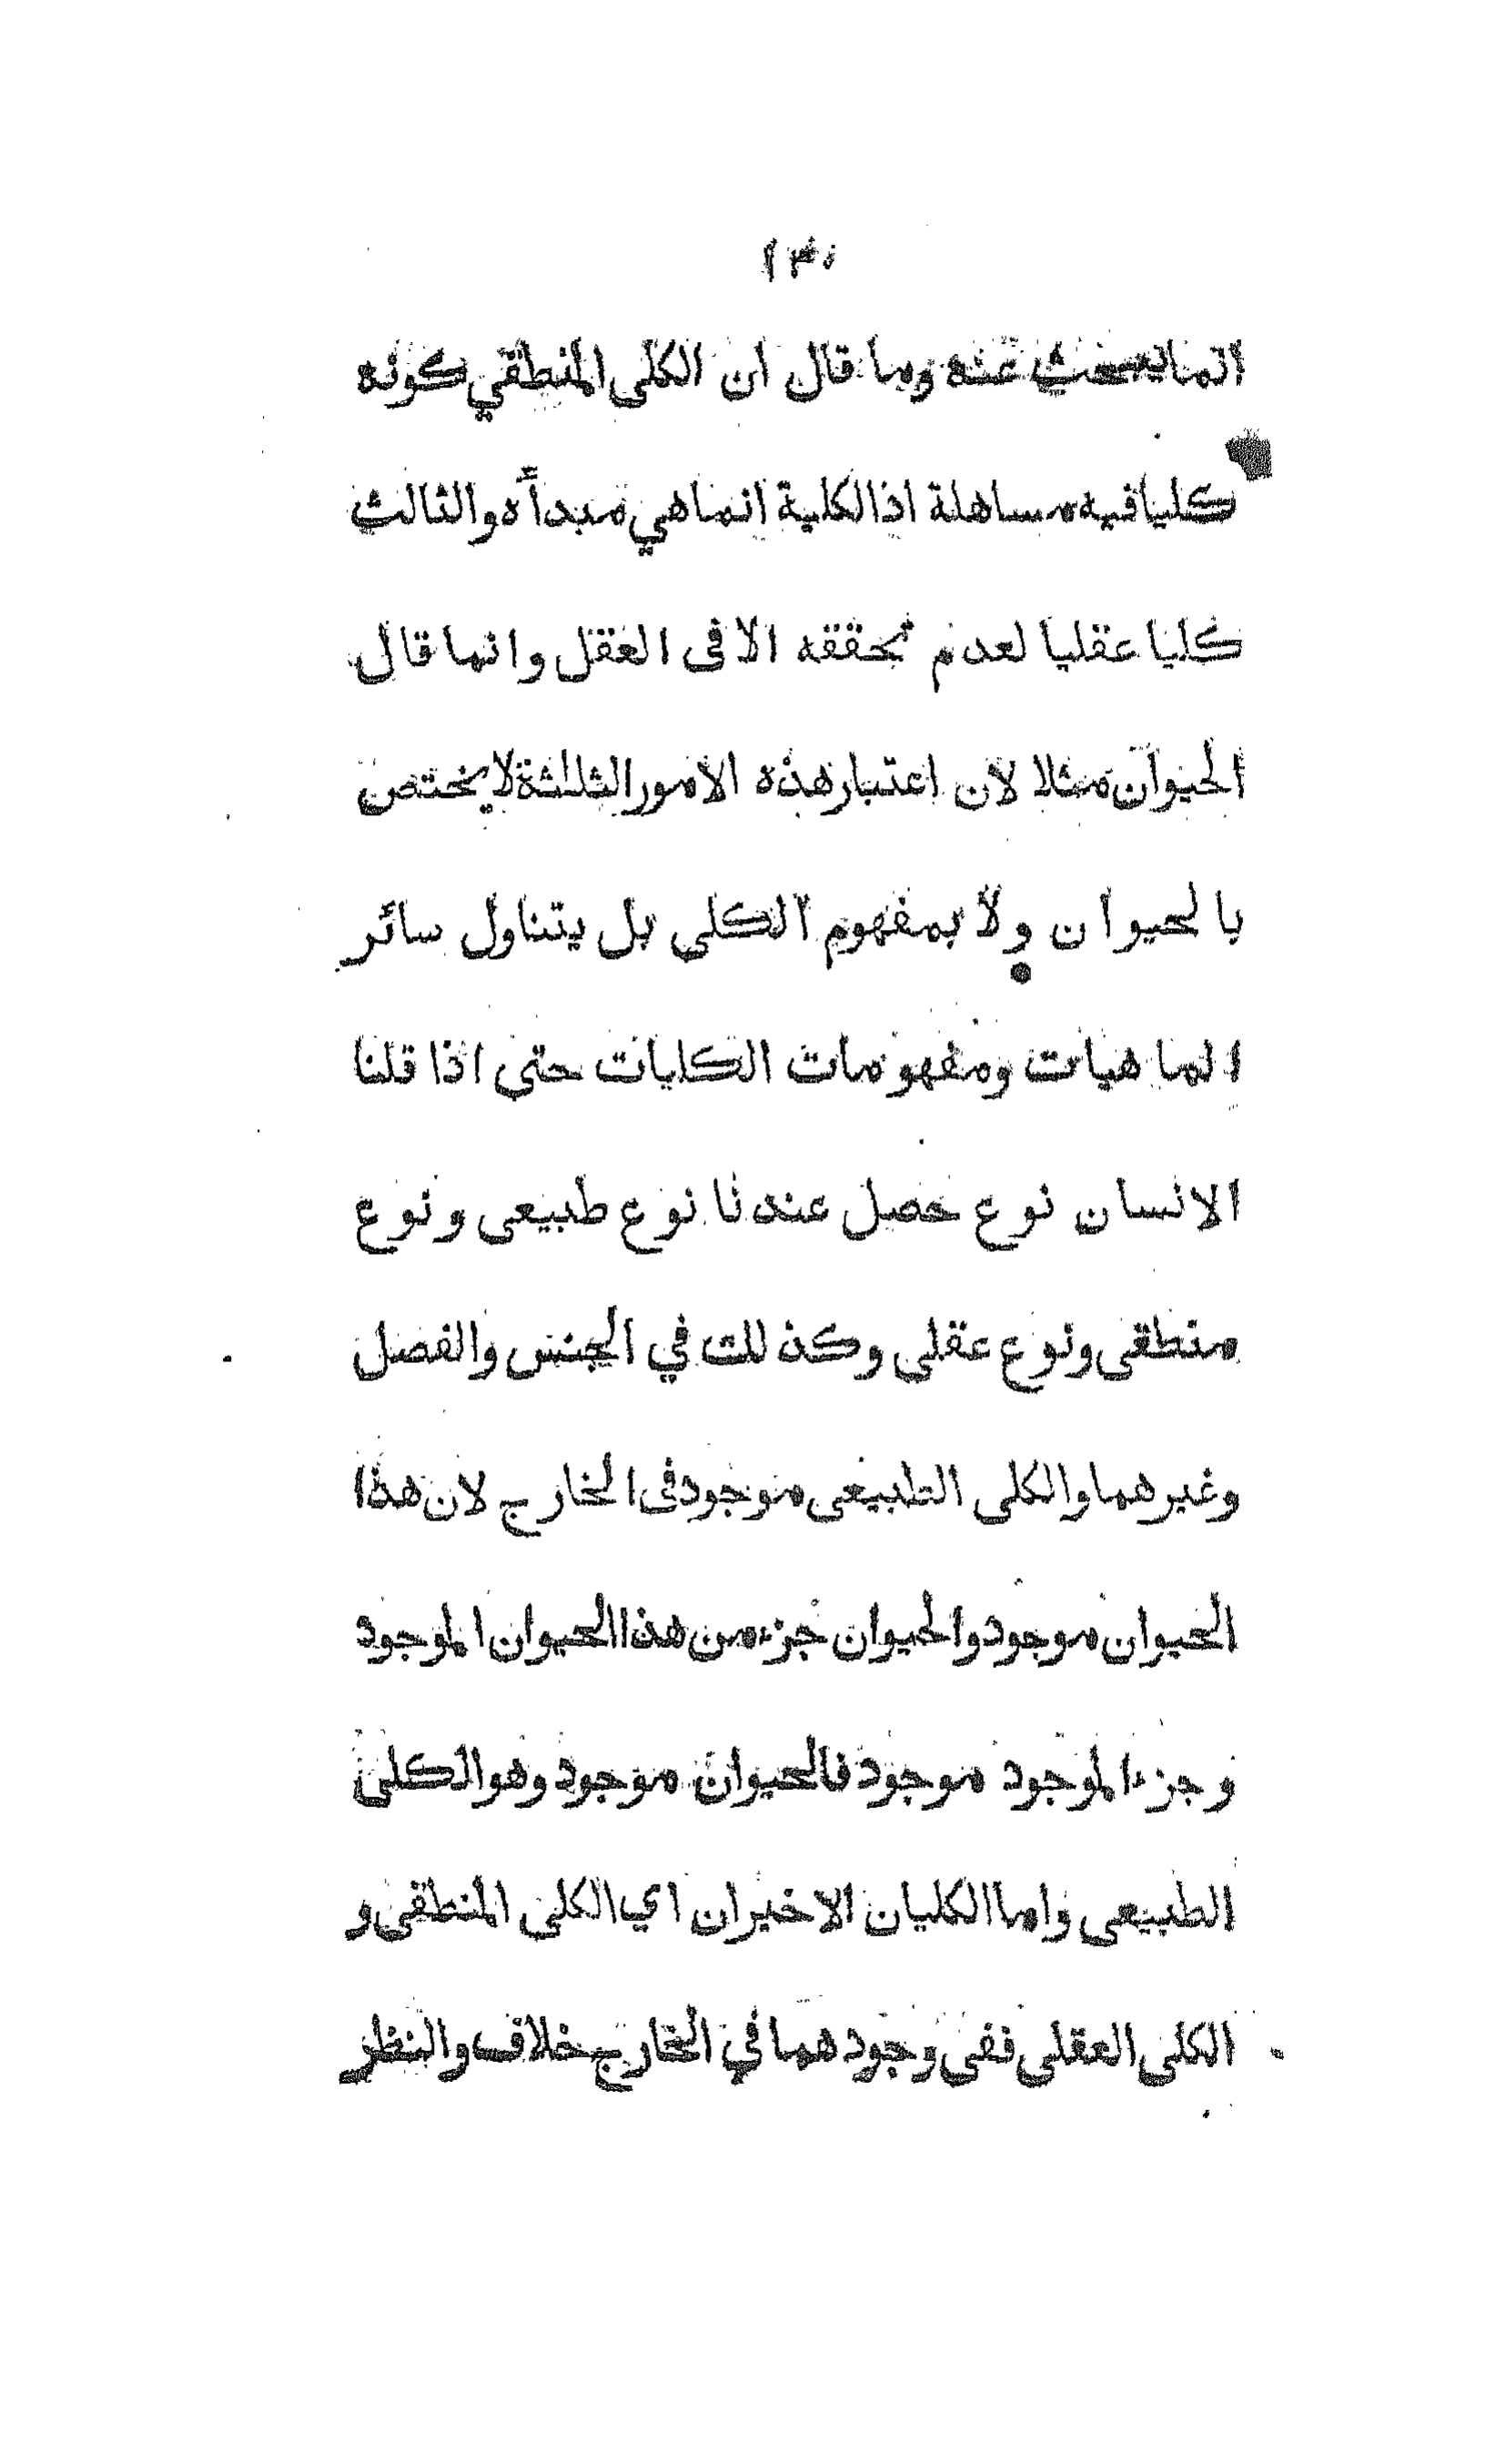 ١٣٠
انما يبحث عنه وما قال ان الكلى المنطقي كونه
كليا فيه مساهلة اذ الكلية انما هي مبدأه والثالث
كليا عقليا لعدم تحققه الا فى العقل وانما قال
الحيوان مثلا لان اعتبار هذه الامور الثلثة لا يختص
بالحيوان ولا بمفهوم الكلى بل يتناول سائر
الماهيات ومفهومات الكليات حتى اذا قلنا
الانسان نوع حصل عندنا نوع طبيعى ونوع
منطقى ونوع عقلى وكذلك في الجنس والفصل
وغيرهما والكلى الطبيعى موجود فى الخارج لان هذا
الحيوان موجود والحيوان جزء من هذا الحيوان الموجود
وجزء الموجود موجود فالحيوان موجود وهو الكلى
الطبيعى واما الكليان الاخيران اي الكلى المنطقى و
الكلى العقلى ففى وجودهما في الخارج خلاف والنظر